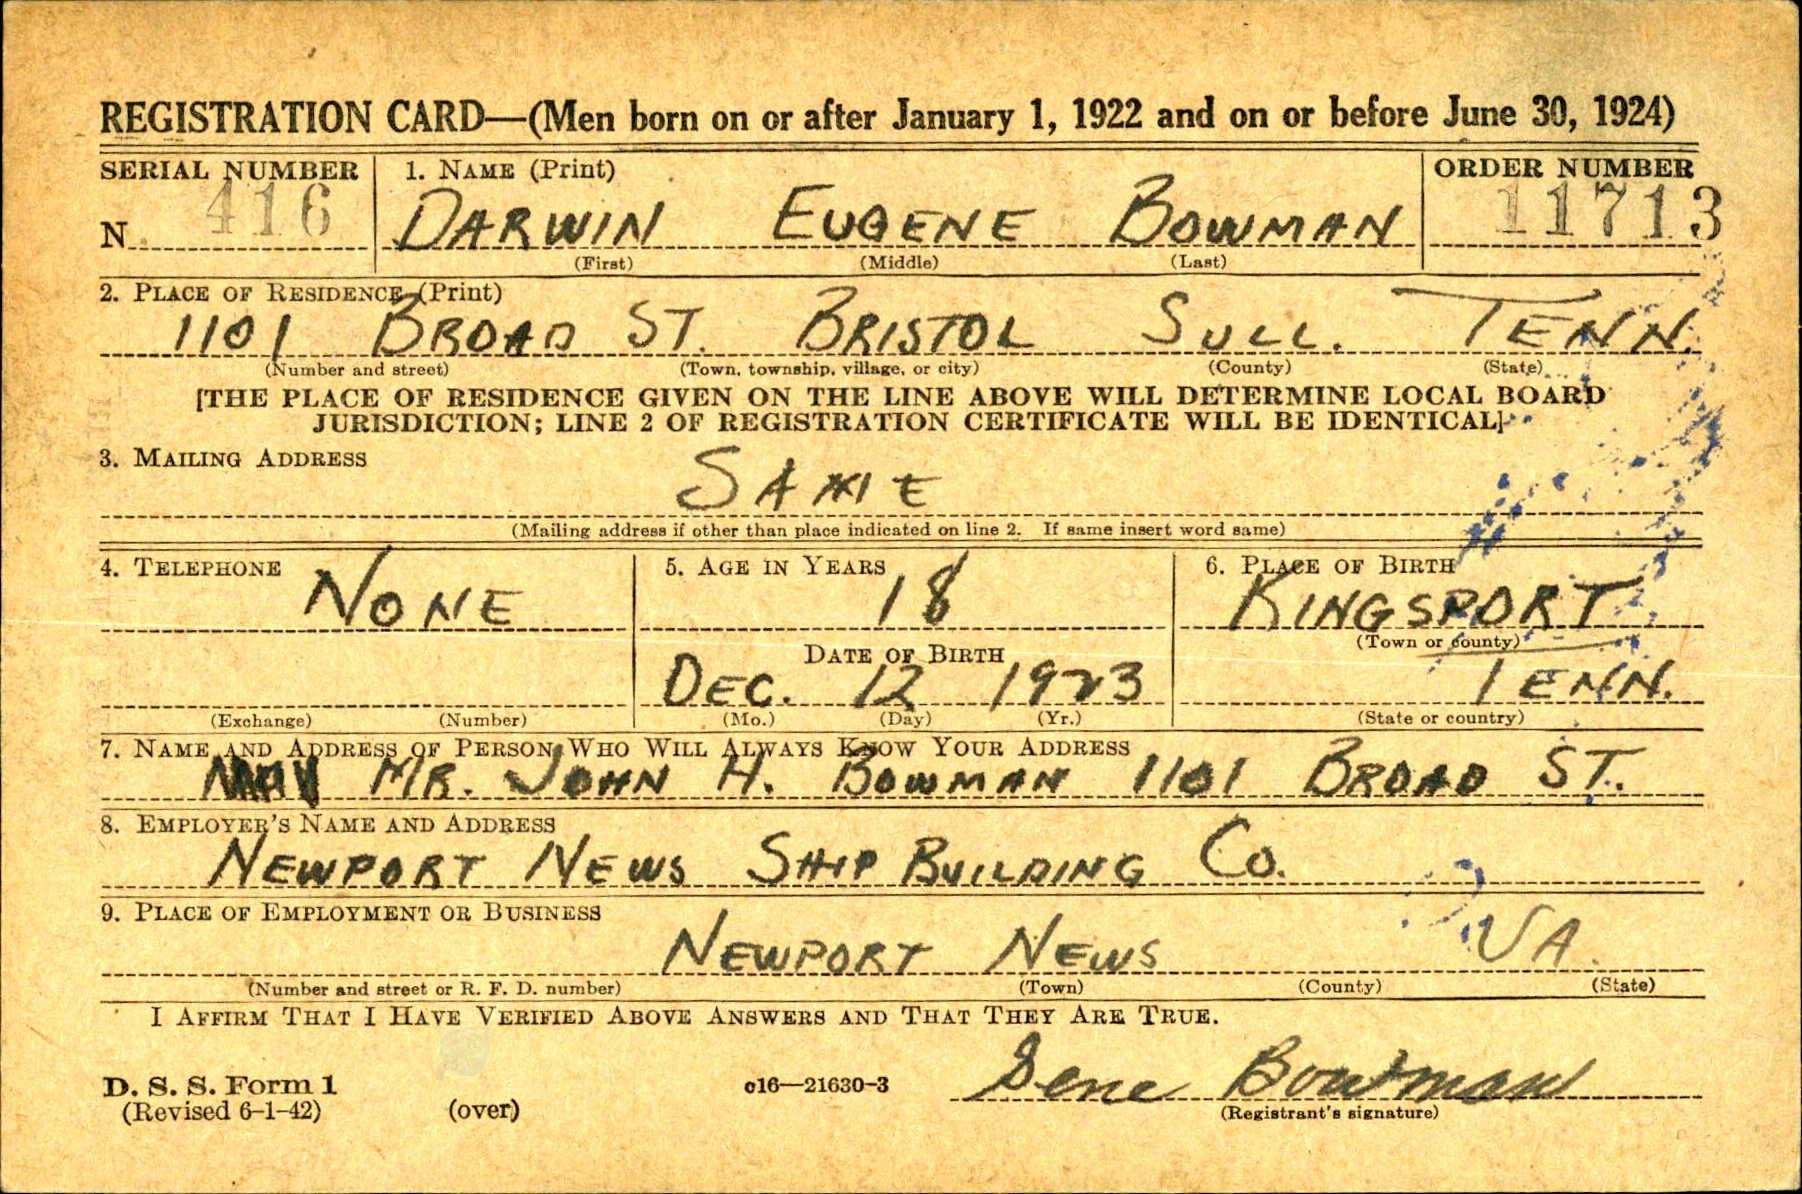 REGISTRATION CARD—(Men born on or after January 1, 1922 and on or before June 30, 1924)
SERIAL NUMBER 1. NAME (Print) ORDER NUMBER
N 416 DARWIN EUGENE BOWMAN 11713
(First) (Middle) (Last)
2. PLACE OF RESIDENCE (Print)
1101 BROAD ST. BRISTOL SULL. TENN.
(Number and street) (Town, township, village, or city) (County) (State)
[THE PLACE OF RESIDENCE GIVEN ON THE LINE ABOVE WILL DETERMINE LOCAL BOARD
JURISDICTION; LINE 2 OF REGISTRATION CERTIFICATE WILL BE IDENTICAL]
3. MAILING ADDRESS
SAME
(Mailing address if other than place indicated on line 2. If same insert word same)
4. TELEPHONE 5. AGE IN YEARS 6. PLACE OF BIRTH
NONE 18 KINGSPORT
(Town or county)
DATE OF BIRTH
DEC. 12 1923 TENN.
(Exchange) (Number) (Mo.) (Day) (Yr.) (State or country)
7. NAME AND ADDRESS OF PERSON WHO WILL ALWAYS KNOW YOUR ADDRESS
MR. JOHN H. BOWMAN 1101 BROAD ST.
8. EMPLOYER'S NAME AND ADDRESS
NEWPORT NEWS SHIP BUILDING CO.
9. PLACE OF EMPLOYMENT OR BUSINESS
NEWPORT NEWS VA.
(Number and street or R. F. D. number) (Town) (County) (State)
I AFFIRM THAT I HAVE VERIFIED ABOVE ANSWERS AND THAT THEY ARE TRUE.
D. S. S. Form 1 c16—21630-3 Gene Bowman
(Revised 6-1-42) (over) (Registrant's signature)